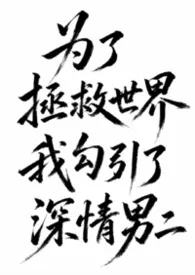 为了
拯救世界
我勾引了
深情男二